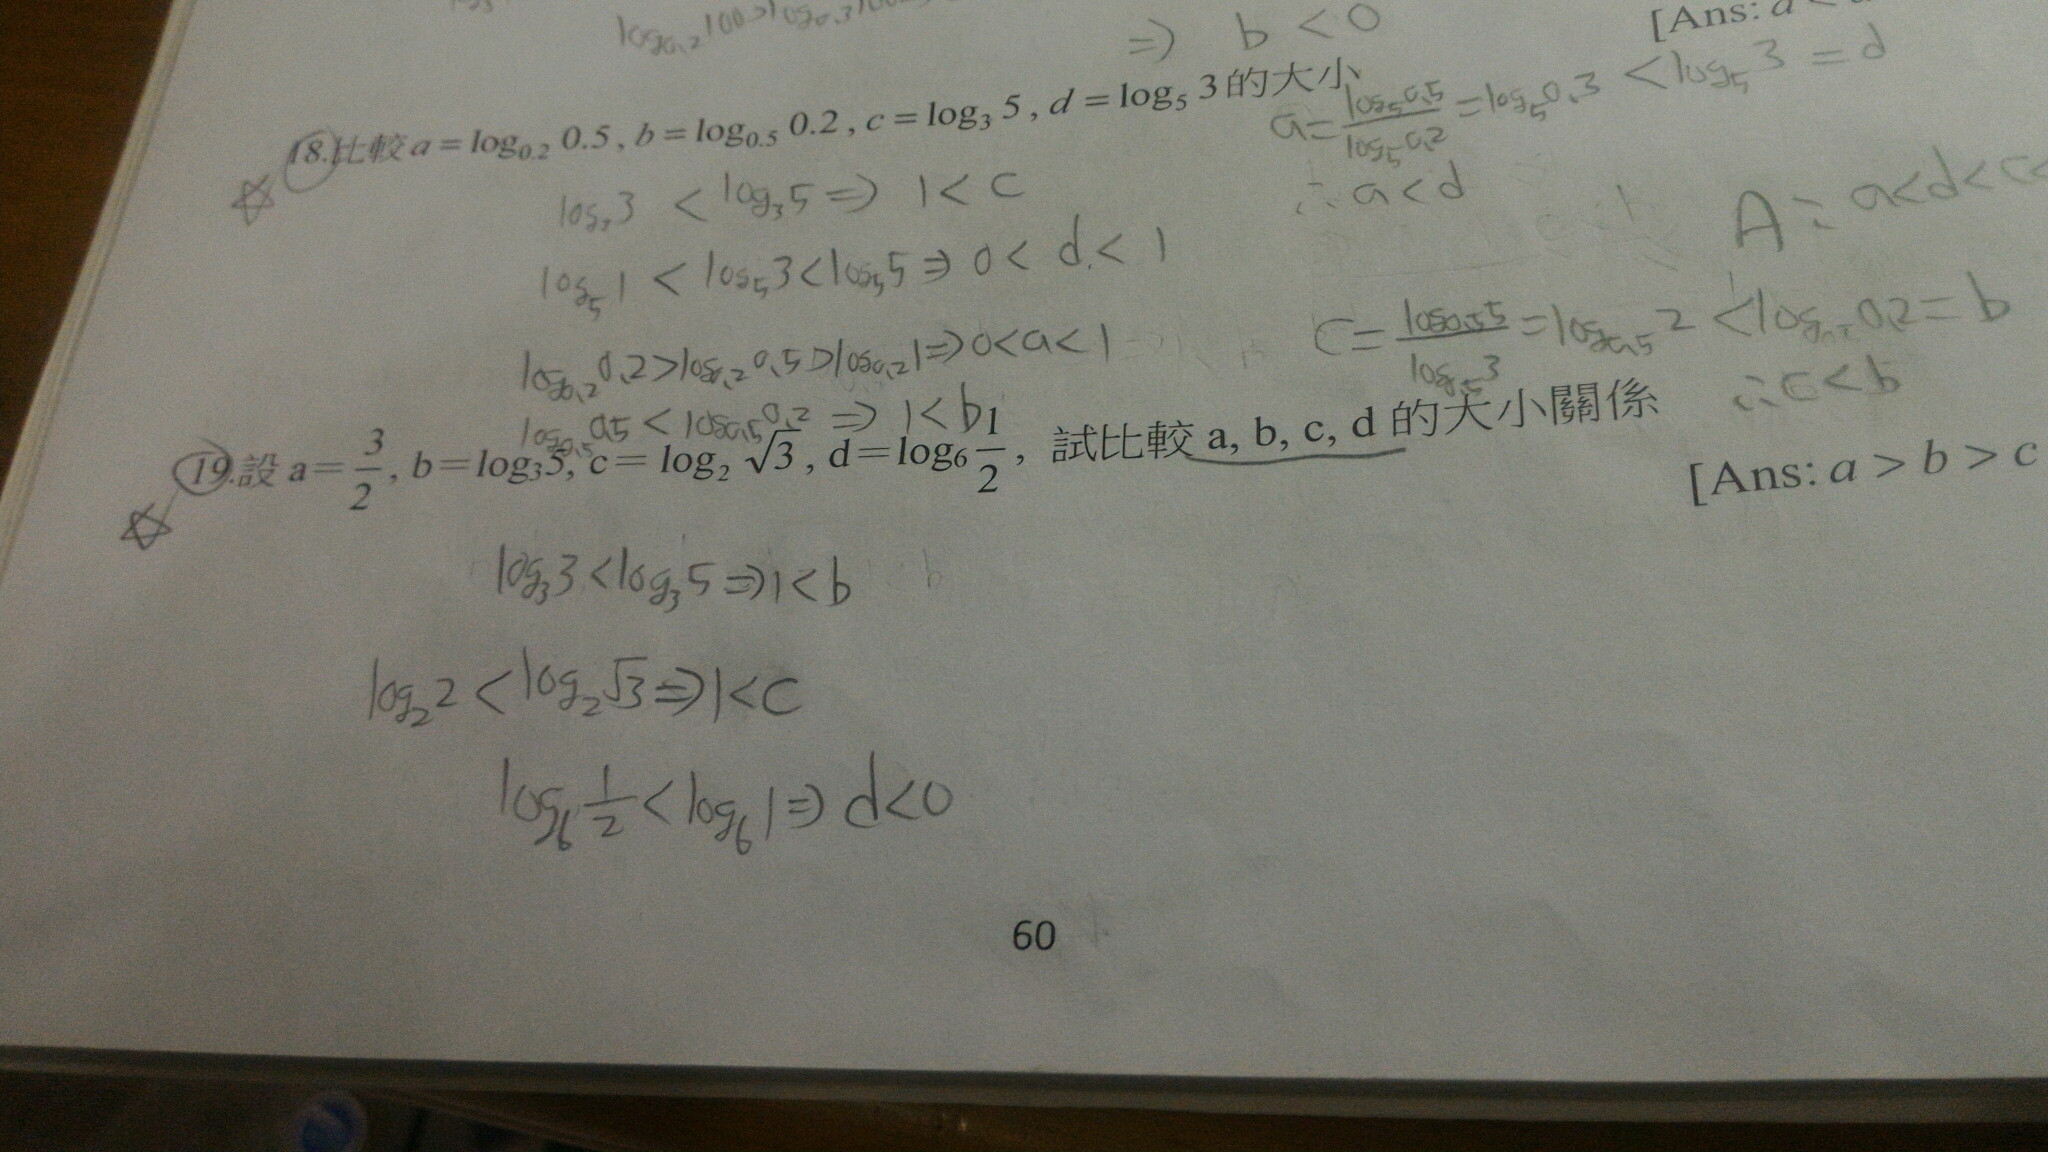 log₀.₂100>log₀.₃100
⇒ b<0
[Ans: a<
18.比較 a = log₀.₂ 0.5 , b = log₀.₅ 0.2 , c = log₃ 5 , d = log₅ 3 的大小
a=log₅0.5/log₅0.2=log₅0.3<log₅3=d
log₃3 < log₃5 ⇒ 1<c
∴a<d
A: a<d<c<
log₅1 < log₅3<log₅5 ⇒ 0<d<1
c=log₀.₅5/log₀.₅3=log₀.₅2<log₀.₅0.2=b
log₀.₂0.2>log₀.₂0.5>log₀.₂1⇒0<a<1
∴c<b
log₀.₅0.5<log₀.₅0.2 ⇒ 1<b
19.設 a=3/2, b=log₃5, c=log₂ √3 , d=log₆ 1/2 , 試比較 a, b, c, d 的大小關係
[Ans: a > b > c
log₃3<log₃5⇒1<b
log₂2<log₂√3⇒1<c
log₆1/2<log₆1⇒d<0
60